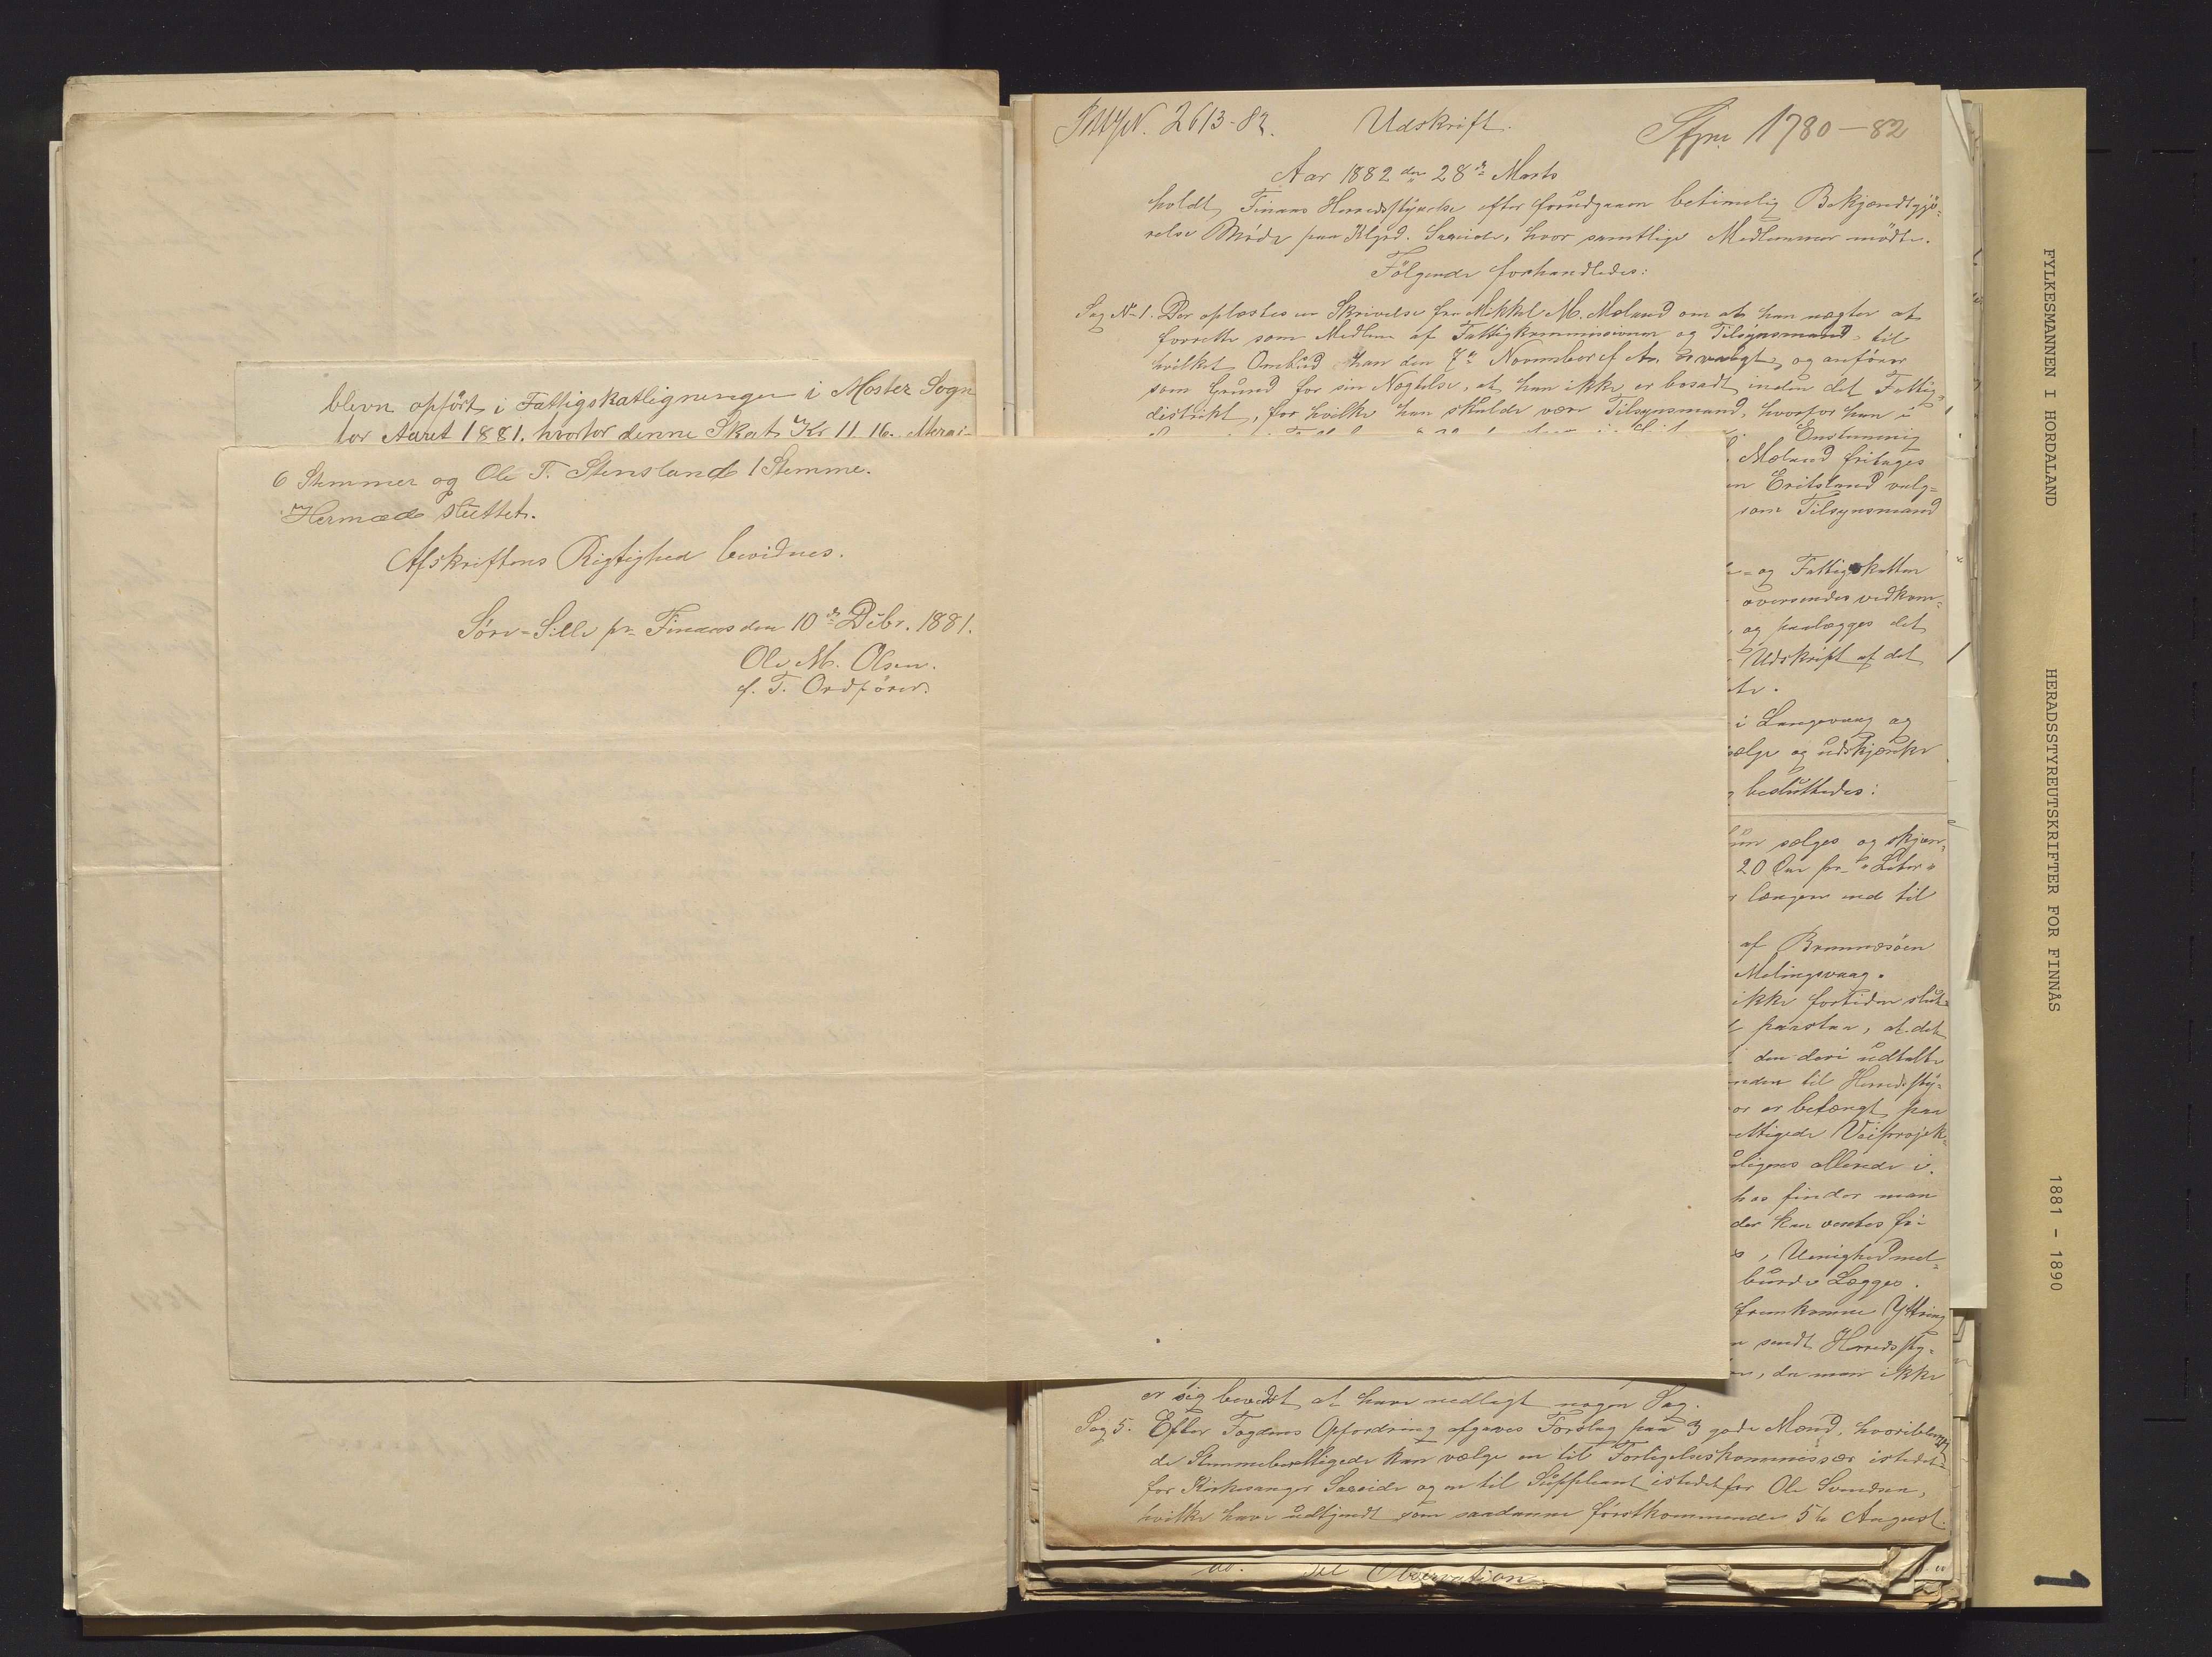 blevn opført i Fattigskatligningen i Moster Sogn
for Aaret 1881. hvorfor denne Skat Kr 11.16.
6 Stemmer og Ole T. Stensland 1 Stemme.
Hermæd sluttet.
Afskriftens Rigtighed bevidnes.
Søre-Sille pr. Finaas den 10de Debr. 1881.
Ole M. Olsen.
f. T. Ordfører.
2613-82. Udskrift. 1780-82
Aar 1882 den 28de Marts
holdt Finaas Herredsstyrelse efter forudgaaen betimelig Bekjændtgjö-
relse Möde paa Klgrd. Saaeide, hvor samtlige Medlemmer mödte.
Fölgende forhandledes:
Sag No 1. Der oplæstes en Skrivelse fra Mikkel M. Mæland om at han nægter at
forrette som Medlem af Fattigkommissionen og Tilsynsmand, til
hvilket Ombud han den 7de November f. A. er valgt, og anförer
som Grund for sin Nægtelse, at han ikke er bosadt inden det Fattig-
distrikt, for hvilke han skulde være Tilsynsmand, hvorfor han i
Enstemmig
Mæland fritages
en Eritsland valg-
som Tilsynsmand
- og Fattigskatten
oversendes vedkom-
, og paalægges det
Udskrift af det
i Langevaag og
sælge og udskjænke
besluttedes:
sælges og skjæn-
20 Øre pr. "Liter"
længere end til
af Bremnæsöen
Melingsvaag.
ikke fortiden slut-
paastaa, at det
den deri udtalte
nden til Herredssty-
or er betænkt paa
ettigede Veiprojek-
allerede i
hos finder man
der kan ventes fri
, Uenighed mel-
burde Lægges.
fremkomne Yttring
sendt Herredssty-
, da man ikke
er sig bevidst at have nedlagt nogen Sag.
Sag 5. Efter Fogdens Opfordring afgaves Forslag paa 3 gode Mænd, hvoriblandt
de Stemmeberettigede kan vælge en til Forligelseskommissær istedet-
for Kirkesanger Saaeide og en til Suppleant istedetfor Ole Svendsen,
hvilke have udtjendt som saadanne förstkommende 5te August.
do. til Observation
FYLKESMANNEN I HORDALAND HERADSSTYREUTSKRIFTER FOR FINNÅS 1881 - 1890
1